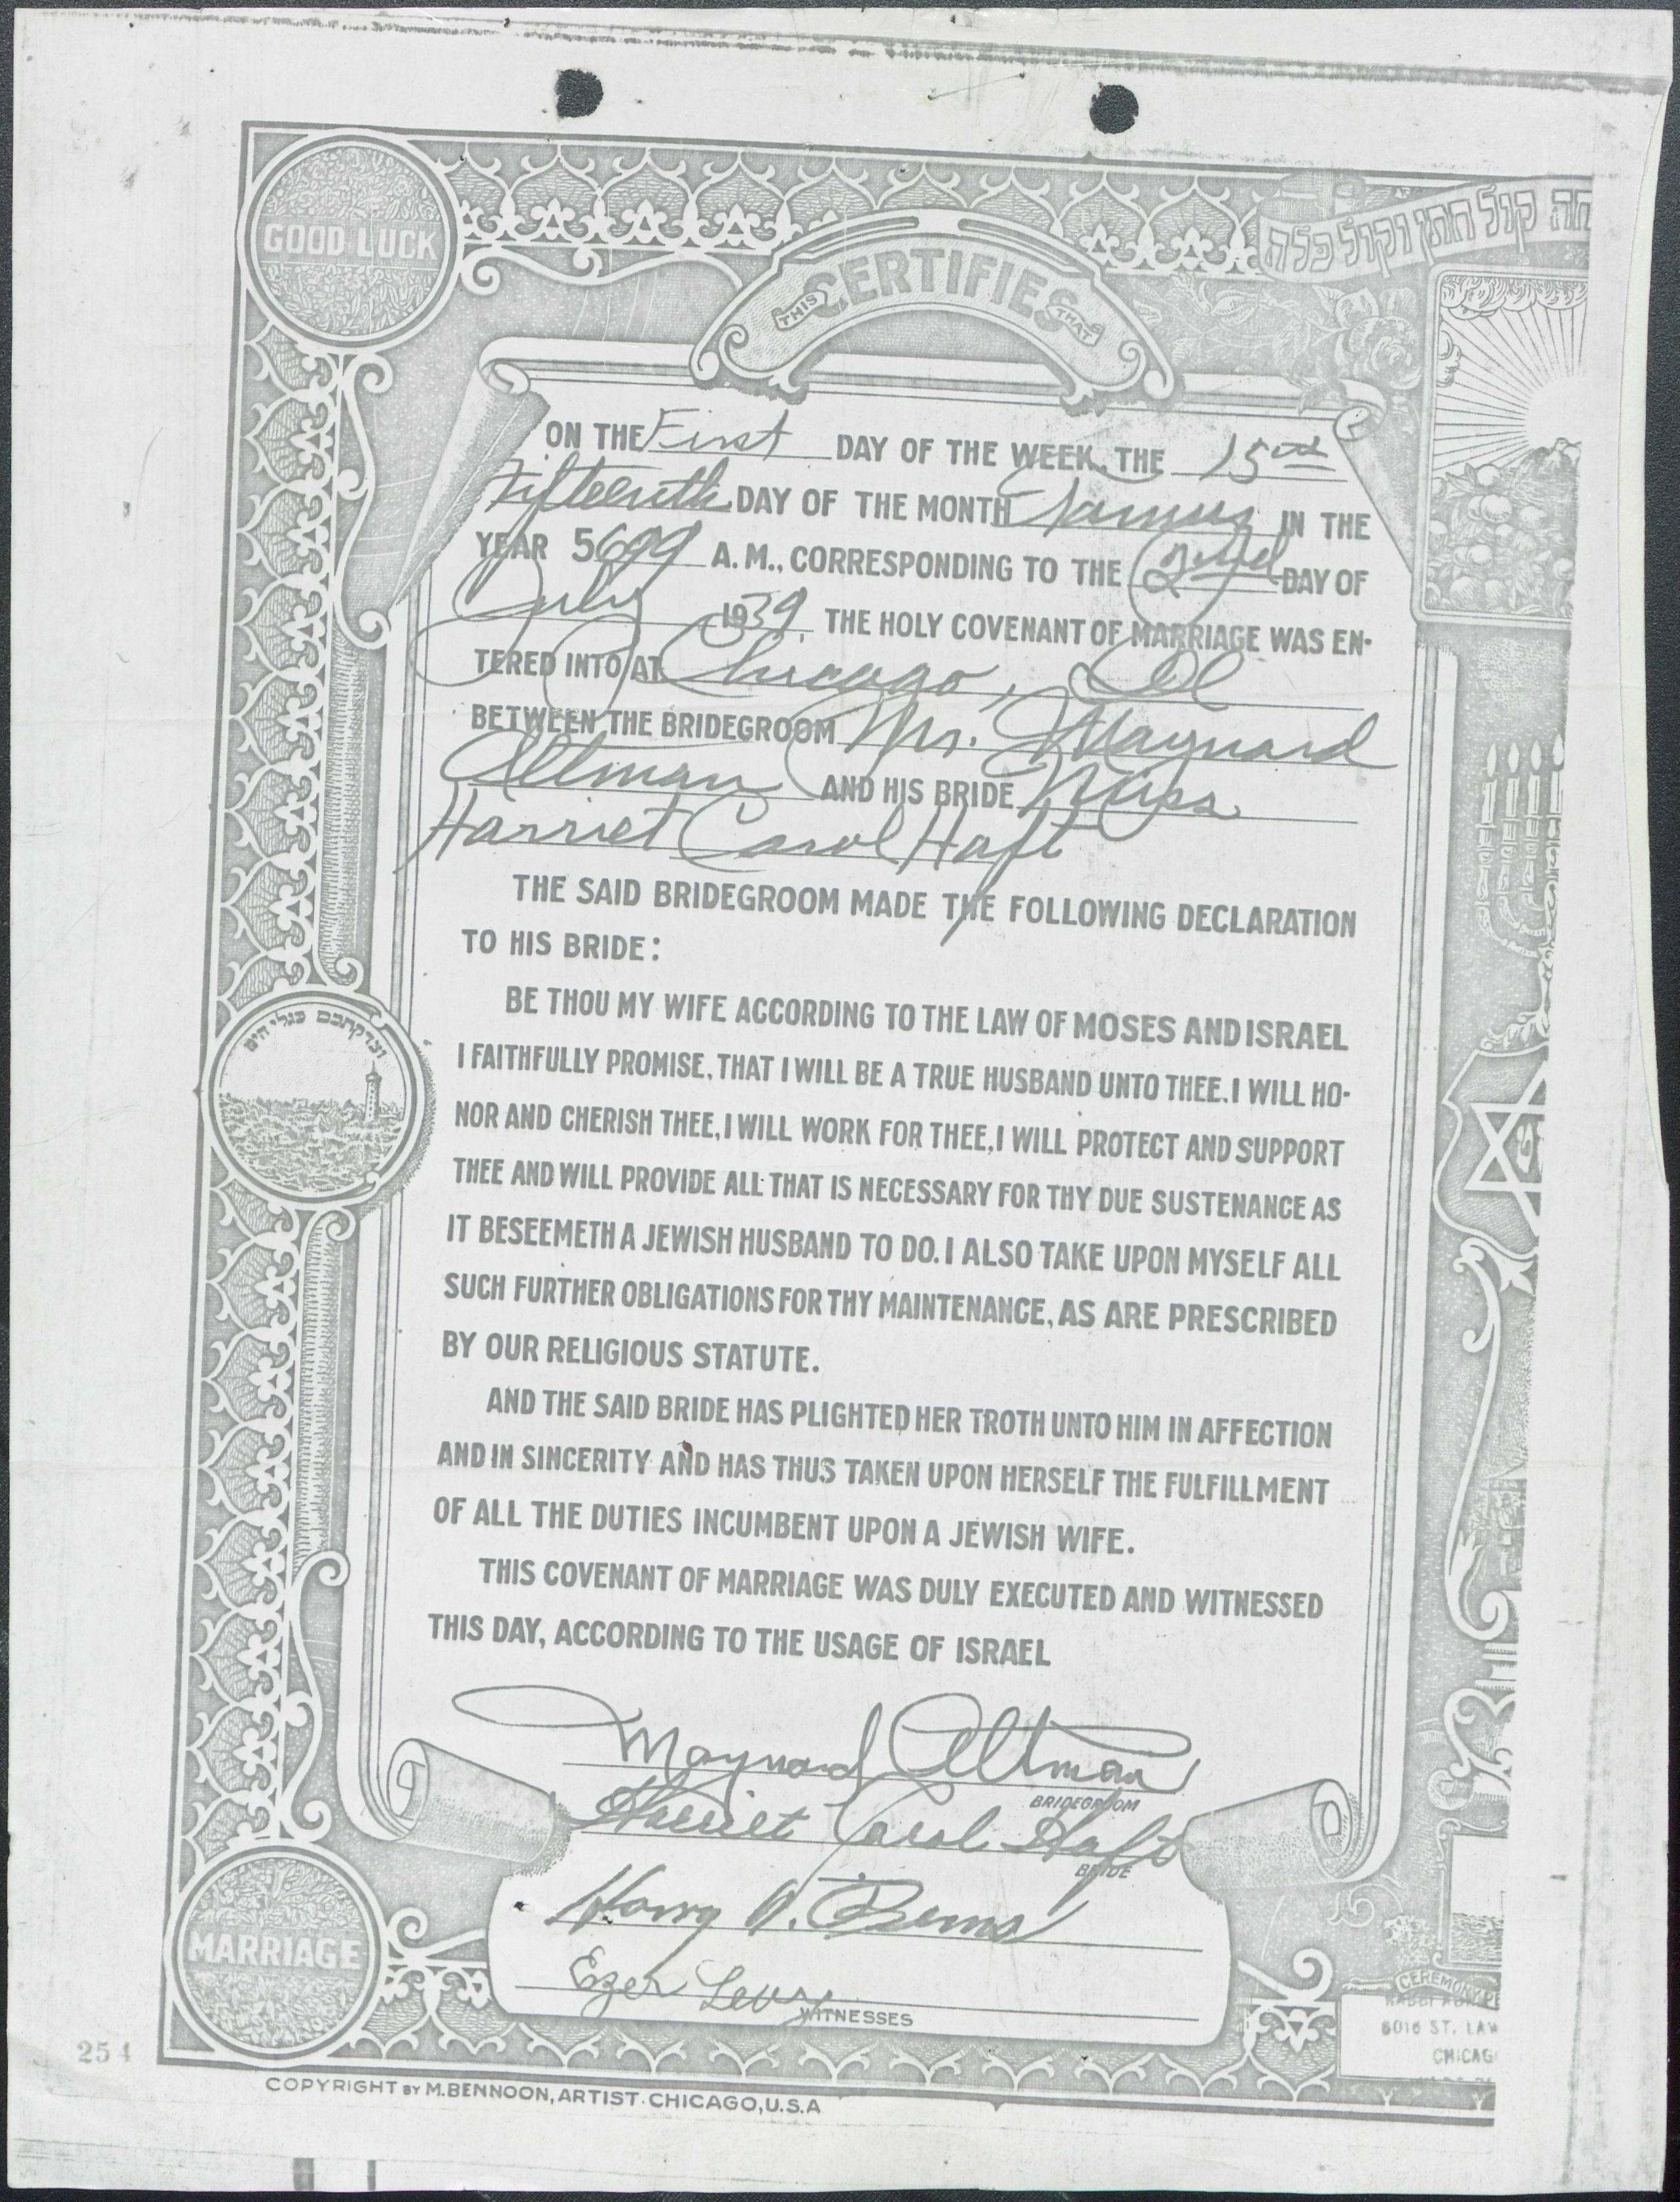 GOOD LUCK
חה קול חתן וקול כלה
THIS CERTIFIES THAT
ON THE First DAY OF THE WEEK, THE 15th
Fifteenth DAY OF THE MONTH Tamuz IN THE
YEAR 5699 A.M., CORRESPONDING TO THE 2nd DAY OF
July 1939, THE HOLY COVENANT OF MARRIAGE WAS EN-
TERED INTO AT Chicago, Ill
BETWEEN THE BRIDEGROOM Mr. Maynard
Altman AND HIS BRIDE Miss
Harriet Carol Haft
THE SAID BRIDEGROOM MADE THE FOLLOWING DECLARATION
TO HIS BRIDE:
BE THOU MY WIFE ACCORDING TO THE LAW OF MOSES AND ISRAEL
I FAITHFULLY PROMISE, THAT I WILL BE A TRUE HUSBAND UNTO THEE. I WILL HO-
NOR AND CHERISH THEE, I WILL WORK FOR THEE, I WILL PROTECT AND SUPPORT
THEE AND WILL PROVIDE ALL THAT IS NECESSARY FOR THY DUE SUSTENANCE AS
IT BESEEMETH A JEWISH HUSBAND TO DO. I ALSO TAKE UPON MYSELF ALL
SUCH FURTHER OBLIGATIONS FOR THY MAINTENANCE, AS ARE PRESCRIBED
BY OUR RELIGIOUS STATUTE.
AND THE SAID BRIDE HAS PLIGHTED HER TROTH UNTO HIM IN AFFECTION
AND IN SINCERITY AND HAS THUS TAKEN UPON HERSELF THE FULFILLMENT
OF ALL THE DUTIES INCUMBENT UPON A JEWISH WIFE.
THIS COVENANT OF MARRIAGE WAS DULY EXECUTED AND WITNESSED
THIS DAY, ACCORDING TO THE USAGE OF ISRAEL
Maynard Altman
BRIDEGROOM
Harriet Carol Haft
BRIDE
Harry
Ezer Levy
WITNESSES
MARRIAGE
CEREMONY
RABBI
6016 ST. LAW
CHICAG
254
COPYRIGHT BY M. BENNOON, ARTIST. CHICAGO, U.S.A